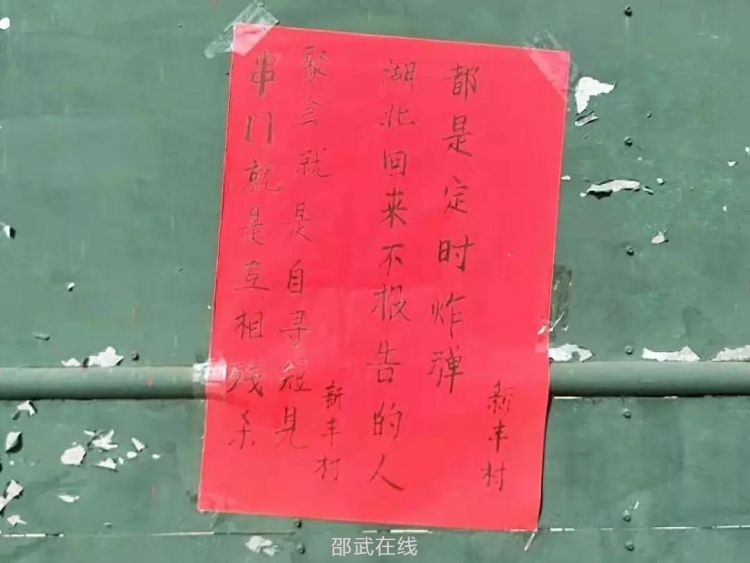 串门就是互相残杀
聚会就是自寻短见
新丰村
湖北回来不报告的人
都是定时炸弹
新丰村
邵武在线